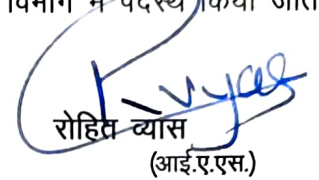 विभाग में पदस्थ किया जात
R. Vyas
रोहित व्यास
(आई.ए.एस.)